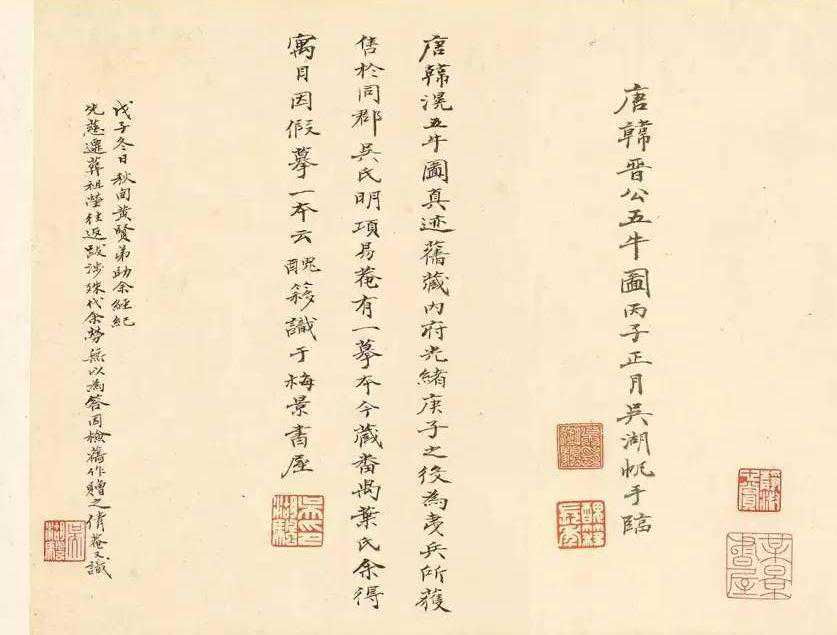 唐韓晋公五牛圖丙子正月吳湖帆手臨
唐韓滉五牛圖真迹舊藏內府光緒庚子之後為夷兵所獲
售於同郡吳氏明項易菴有一摹本今藏番禺葉氏余得
寓目因假摹一本云醜簃識于梅景書屋
戊子冬日秋甸黃賢弟助余經紀
先慈遷葬祖塋往返跋涉殊代余勞無以為答因檢舊作贈之倩菴又識